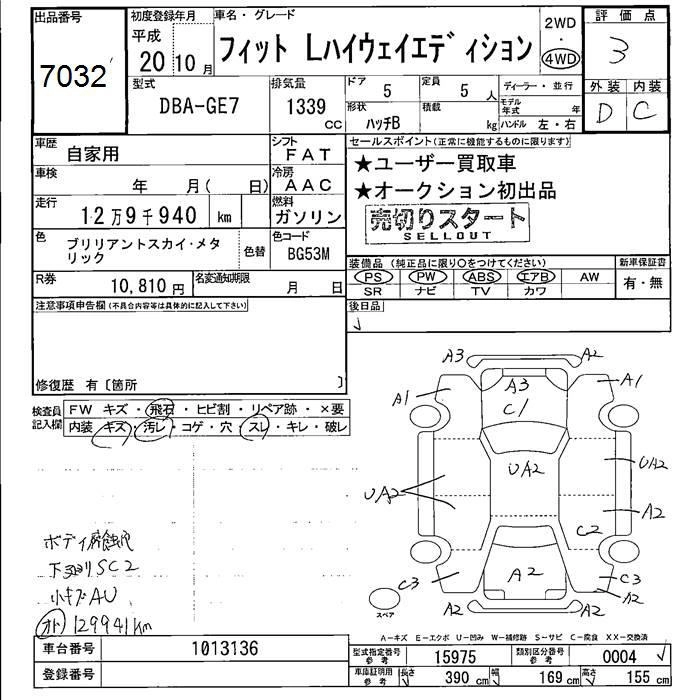 出品番号
7032
初度登録年月
平成
20 10 月
車名・グレード
フィット Lハイウェイエディション
2WD
・
4WD
評価点
3
型式
DBA-GE7
排気量
1339
CC
ドア 5
定員 5 人
形状
ハッチB
積載
kg
ディーラー・並行
モデル年式 年
ハンドル 左・右
外装 内装
D C
車歴
自家用
シフト
FAT
車検
年 月( 日)
冷房
AAC
走行
12万9千940 km
燃料
ガソリン
色
ブリリアントスカイ・メタリック
色替
色コード
BG53M
R券
10,810 円
名変通知期限
月 日
セールスポイント(正常に機能するものに限ります)
★ユーザー買取車
★オークション初出品
売切りスタート
SELLOUT
装備品(純正品に限り○をつけてください)
PS PW ABS エアB AW
SR ナビ TV カワ
新車保証書
有・無
後日品
注意事項申告欄(不具合内容等は具体的に記入して下さい)
修復歴 有〔箇所 〕
検査員
記入欄
FW キズ・飛石・ヒビ割・リペア跡・×要
内装 キズ・汚レ・コゲ・穴・スレ・キレ・破レ
A3 A2
A3
C1
A1 A1
UA2
UA2
UA2
A2
C2
A2
C3 C3
A2 A2
スペア
ボディ腐蝕
下廻りSC2
小キズAU
オド 129941km
A－キズ E－エクボ U－凹み W－補修跡 S－サビ C－腐食 XX－交換済
車台番号
1013136
登録番号
型式指定番号
参考
15975
類別区分番号
参考
0004
車庫証明用
参考
長さ 390 cm
幅 169 cm
高さ 155 cm